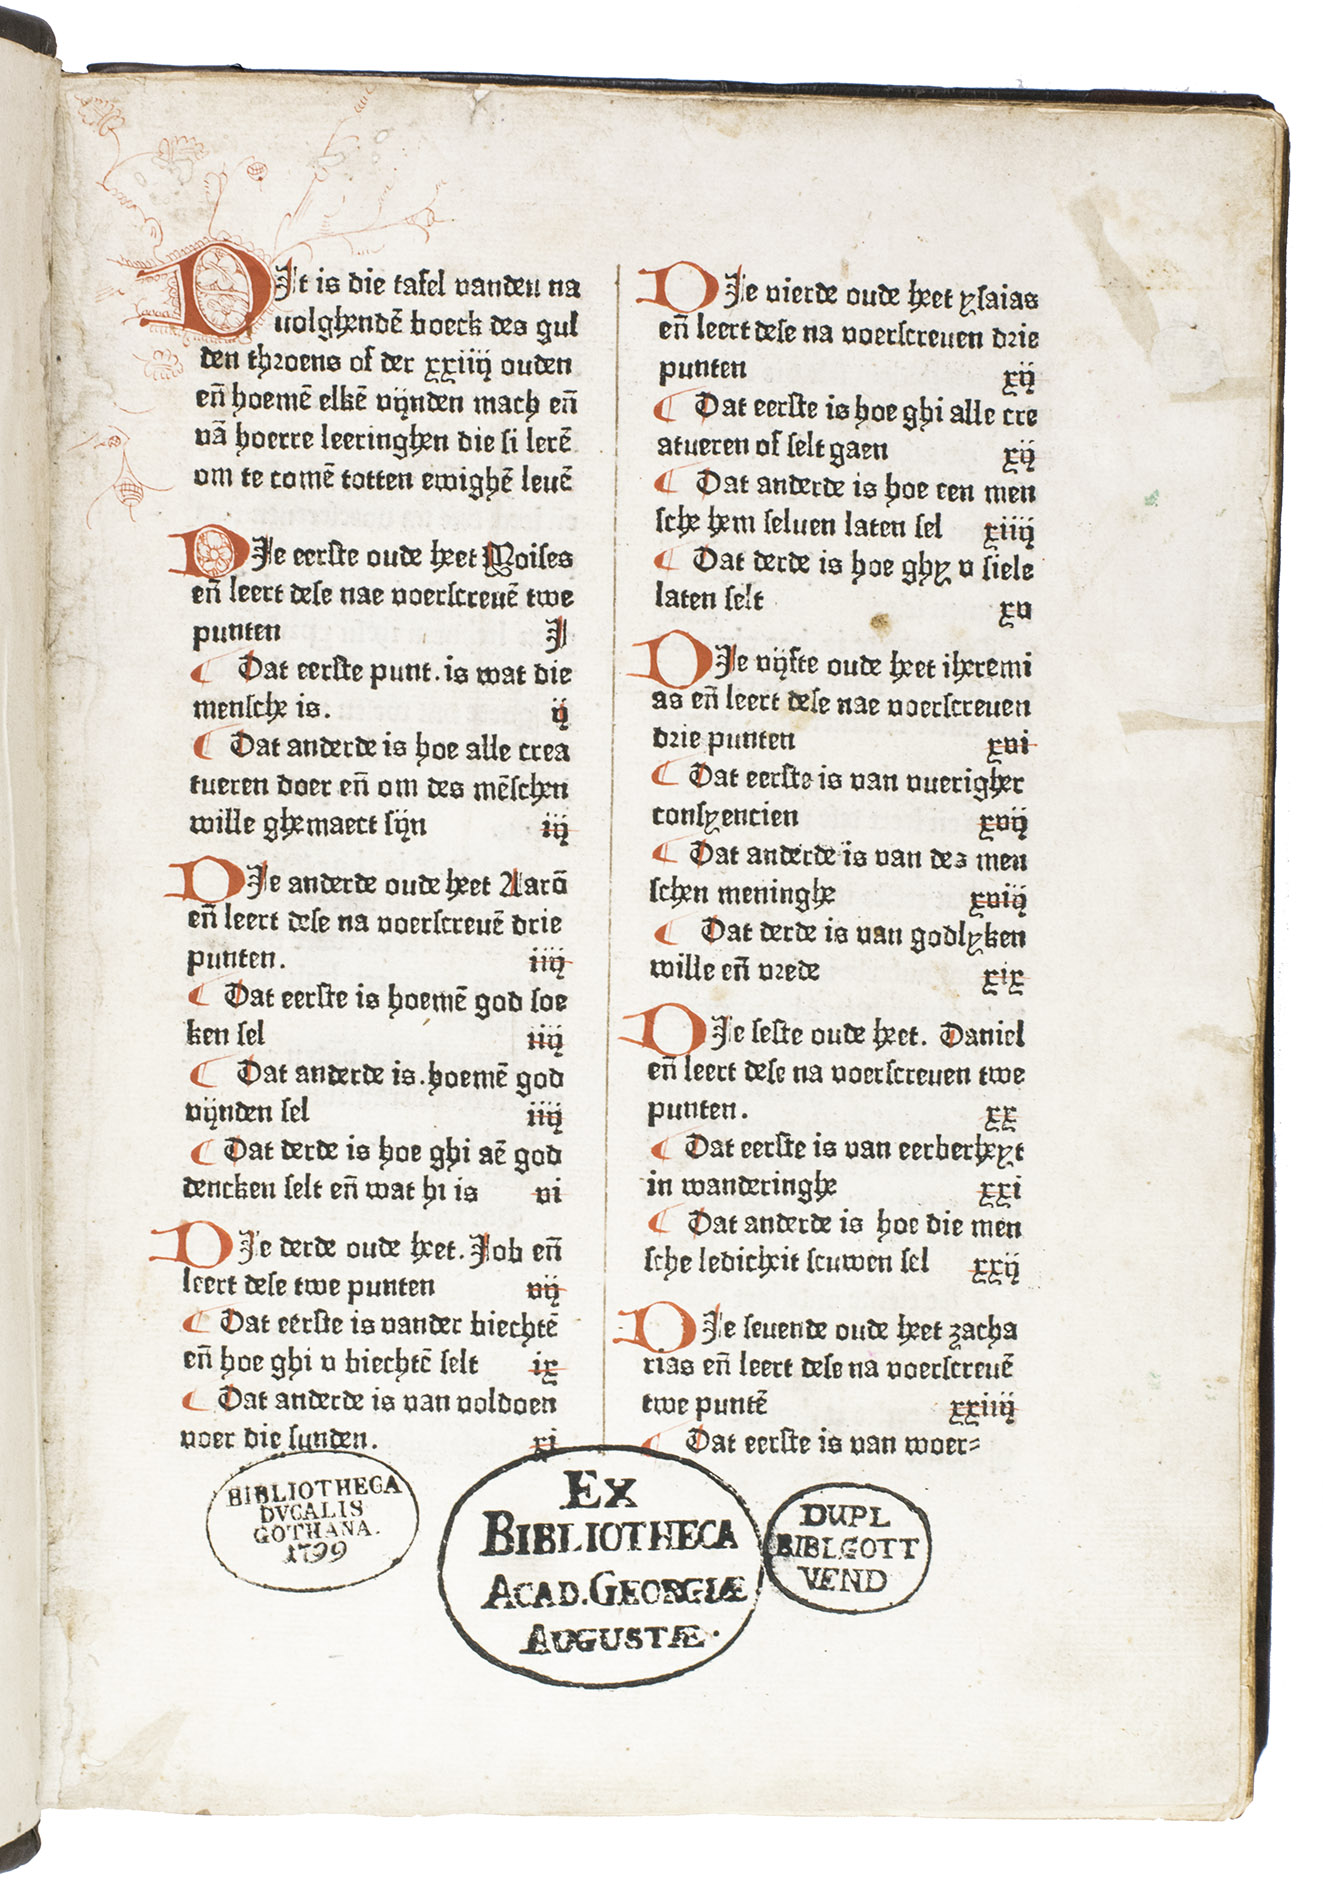 DJt is die tafel vanden na
uolghendē boeck des gul
den throens of der xxiiij ouden
eñ hoemē elkē vijnden mach eñ
vā hoerre leeringhen die si lerē
om te comē totten ewighē leuē
DJe eerste oude heet Moises
eñ leert dese nae voerscreuē twe
punten J
¶ Dat eerste punt. is wat die
mensche is. ij
¶ Dat anderde is hoe alle crea
tueren doer eñ om des mēschen
wille ghemaect sijn iij
DJe anderde oude heet Aarō
eñ leert dese na voerscreuē drie
punten. iiij
¶ Dat eerste is hoemē god soe
ken sel iiij
¶ Dat anderde is. hoemē god
vijnden sel iiij
¶ Dat derde is hoe ghi aē god
dencken selt eñ wat hi is vi
DJe derde oude heet. Job eñ
leert dese twe punten vij
¶ Dat eerste is vander biechtē
eñ hoe ghi v biechtē selt ix
¶ Dat anderde is van voldoen
voer die sunden. xi
DJe vierde oude heet ysaias
eñ leert dese na voerscreuen drie
punten xij
¶ Dat eerste is hoe ghi alle cre
atueren of selt gaen xij
¶ Dat anderde is hoe een men
sche hem seluen laten sel xiiij
¶ Dat derde is hoe ghy v siele
laten selt xv
DJe vijfte oude heet iheremi
as eñ leert dese nae voerscreuen
drie punten xvi
¶ Dat eerste is van vuerigher
consyencien xvij
¶ Dat anderde is van des men
schen meninghe xviij
¶ Dat derde is van godlyken
wille eñ vrede xix
DJe seste oude heet. Daniel
eñ leert dese na voerscreuen twe
punten. xx
¶ Dat eerste is van eerberheyt
in wanderinghe xxi
¶ Dat anderde is hoe die men
sche ledicheit scuwen sel xxij
DJe seuende oude heet zacha
rias eñ leert dese na voerscreuē
twe puntē xxiiij
¶ Dat eerste is van woer=
BIBLIOTHECA
DVCALIS
GOTHANA.
1799
EX
BIBLIOTHECA
ACAD. GEORGIÆ
AUGUSTÆ.
DUPL
BIBL GOTT
VEND